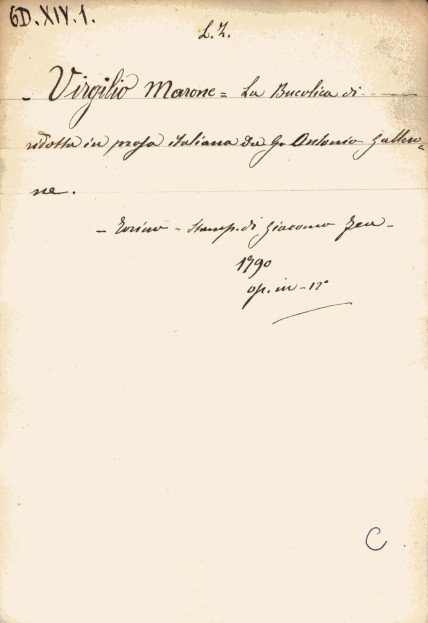 6D.XIV.1.
L.Z.
- Virgilio Marone = La Bucolica di
ridotta in prosa italiana da G. Antonio Galle=
ne.
- Torino - Stamp. di Giacomo Fea -
1790
op. in - 12°
C